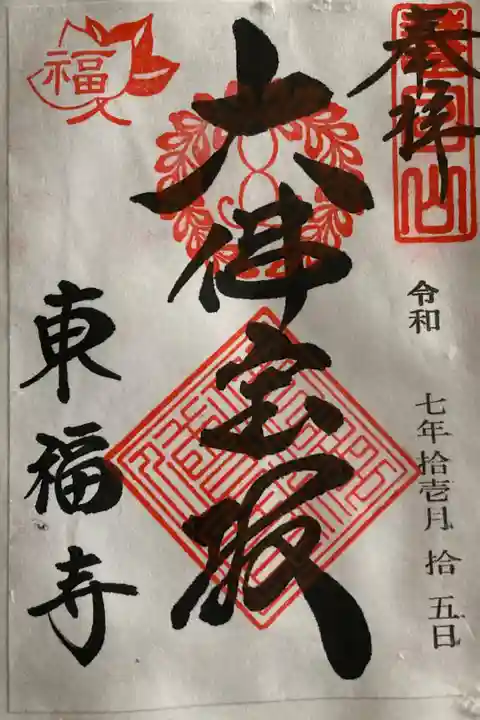 奉拝
令和 七年拾壱月 拾五日
大佛宝殿
東福寺
福